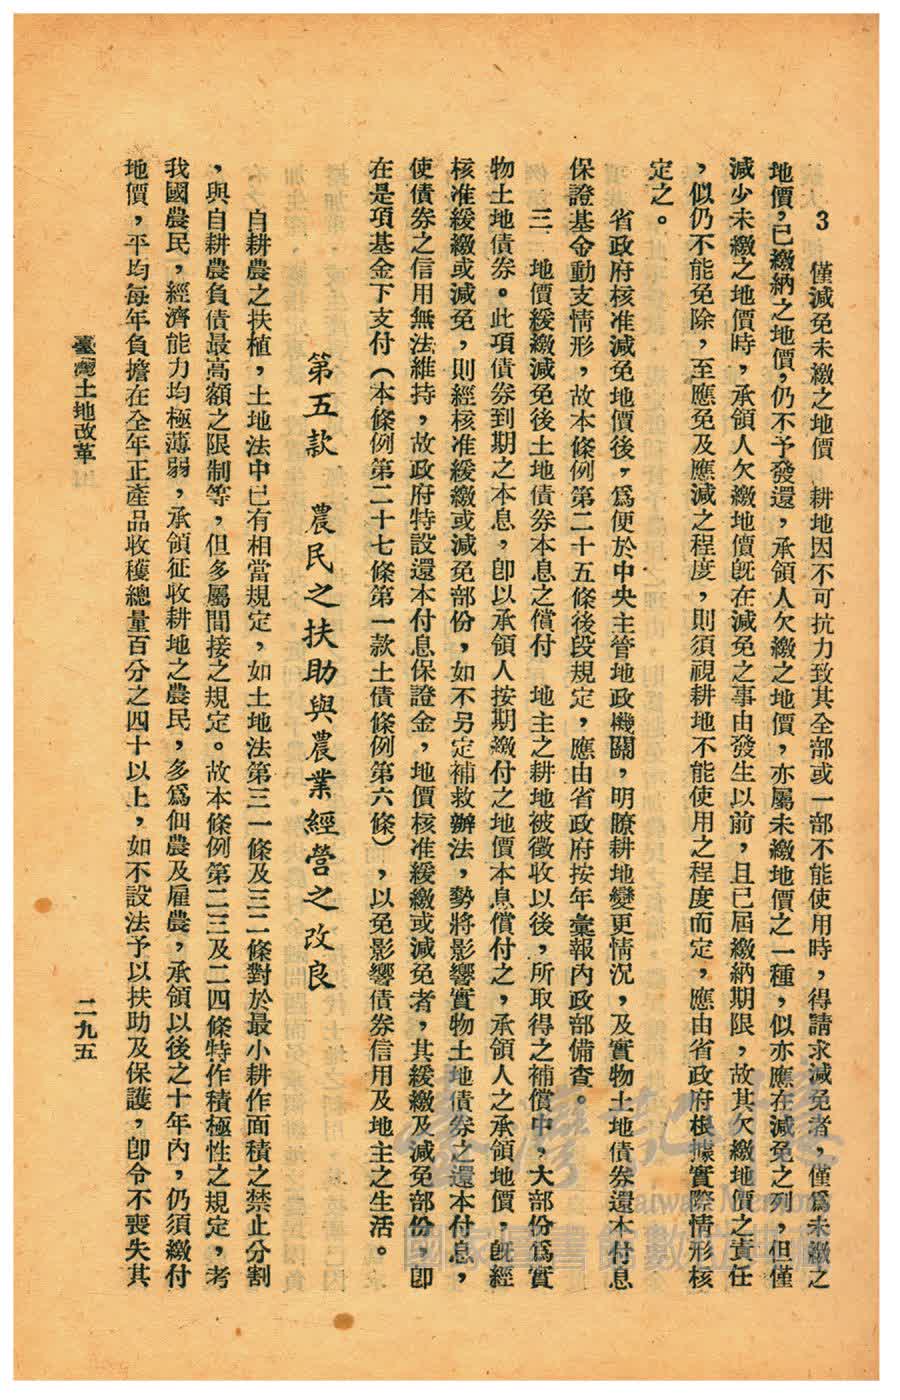 3　僅減免未繳之地價　耕地因不可抗力致其全部或一部不能使用時，得請求減免者，僅爲未繳之
地價，已繳納之地價，仍不予發還，承領人欠繳之地價，亦屬未繳地價之一種，似亦應在減免之列，但僅
減少未繳之地價時，承領人欠繳地價旣在減免之事由發生以前，且已屆繳納期限，故其欠繳地價之責任
，似仍不能免除，至應免及應減之程度，則須視耕地不能使用之程度而定，應由省政府根據實際情形核
定之。
省政府核准減免地價後，爲便於中央主管地政機關，明瞭耕地變更情況，及實物土地債券還本付息
保證基金動支情形，故本條例第二十五條後段規定，應由省政府按年彙報內政部備查。
三　地價緩繳減免後土地債券本息之償付　地主之耕地被徵收以後，所取得之補償中，大部份爲實
物土地債券。此項債券到期之本息，卽以承領人按期繳付之地價本息償付之，承領人之承領地價，旣經
核准緩繳或減免，則經核准緩繳或減免部份，如不另定補救辦法，勢將影響實物土地債券之還本付息，
使債券之信用無法維持，故政府特設還本付息保證金，地價核准緩繳或減免者，其緩繳及減免部份，卽
在是項基金下支付（本條例第二十七條第一款土債條例第六條），以免影響債券信用及地主之生活。
第五款　農民之扶助與農業經營之改良
自耕農之扶植，土地法中已有相當規定，如土地法第三一條及三二條對於最小耕作面積之禁止分割
，與自耕農負債最高額之限制等，但多屬間接之規定。故本條例第二三及二四條特作積極性之規定，考
我國農民，經濟能力均極薄弱，承領征收耕地之農民，多爲佃農及雇農，承領以後之十年內，仍須繳付
地價，平均每年負擔在全年正產品收穫總量百分之四十以上，如不設法予以扶助及保護，卽令不喪失其
臺灣土地改革
二九五
臺灣記憶
Taiwan Memory
國家圖書館數位典藏